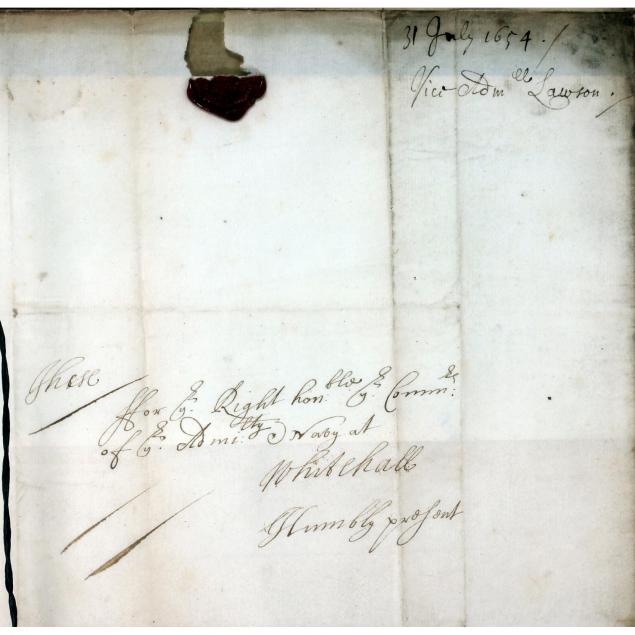 31 July 1654 ·/
Vice Adm^ll Lawson ·/
These
ffor y^e. Right hon:^ble y^e. Comm:^rs
of y^e. Admi:^lty & Navy at
Whitehall
Humbly present